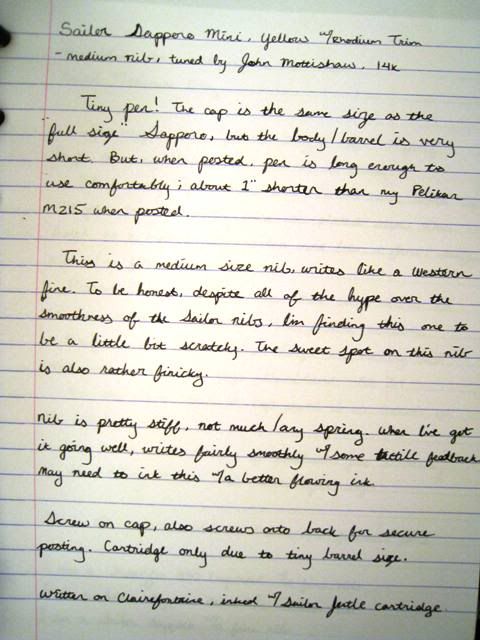 Sailor Sapporo Mini, Yellow w/Rhodium Trim
- medium nib, tuned by John Mottishaw, 14k
Tiny pen! The cap is the same size as the
"full size" Sapporo, but the body/barrel is very
short. But, when posted, pen is long enough to
use comfortably; about 1" shorter than my Pelikan
M215 when posted.
This is a medium size nib, writes like a Western
fine. To be honest, despite all of the hype over the
smoothness of the Sailor nibs, I'm finding this one to
be a little bit scratchy. The sweet spot on this nib
is also rather finicky.
Nib is pretty stiff, not much/any spring. When I've got
it going well, writes fairly smoothly w/some tactile feedback
May need to ink this w/a better flowing ink.
Screw on cap, also screws onto back for secure
posting. Cartridge only due to tiny barrel size.
Written on Clairefontaine, inked w/Sailor Jentle cartridge.